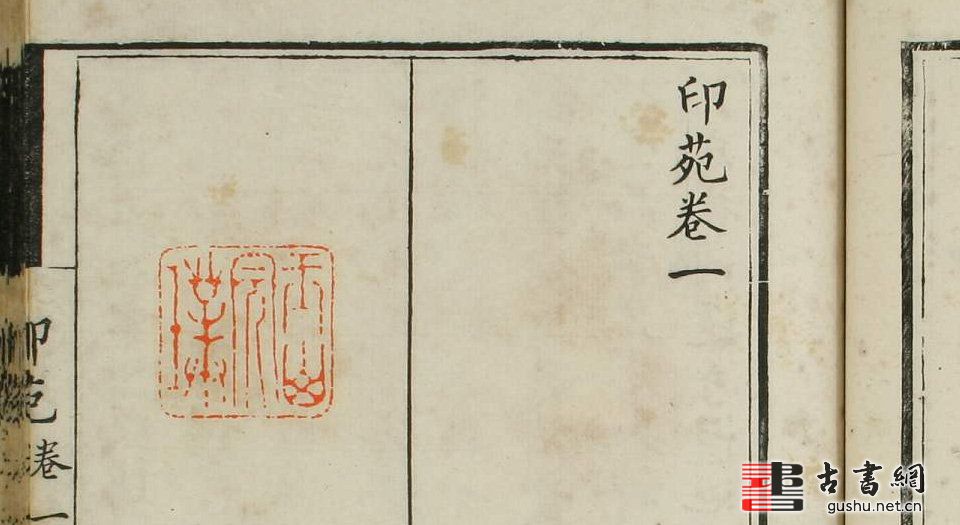 印苑卷一
印苑
卷一
古書網
gushu.net.cn